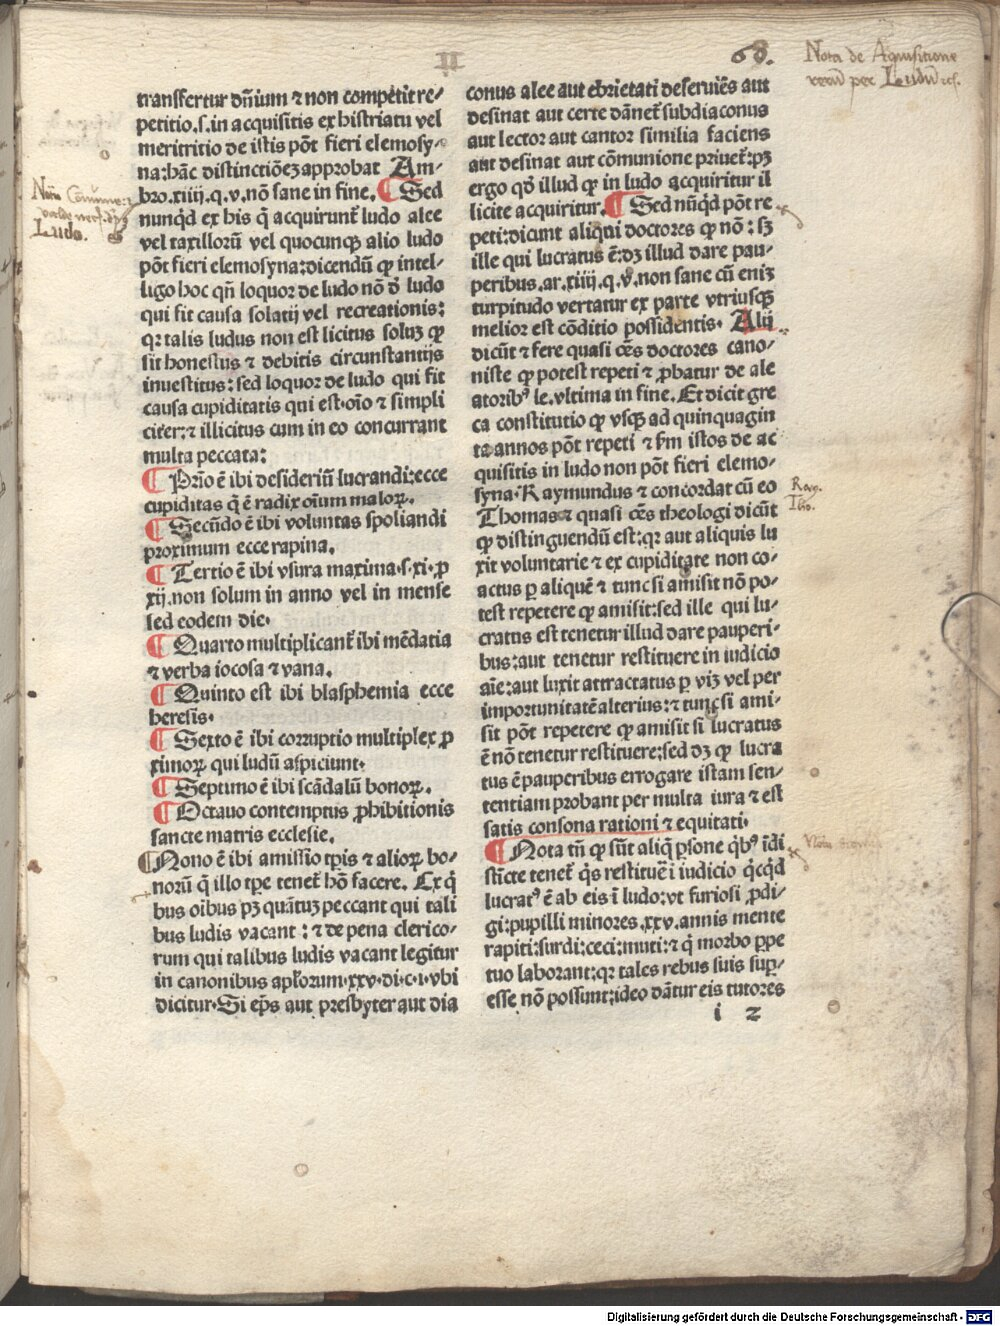 II
68.
Nota de Aquisitione
rerum per Ludum
transfertur dñium ⁊ non competit re⸗
petitio.s.in acquisitis ex histriatu vel
meritritio de istis põt fieri elemosy⸗
na:hãc distinctiõeꝫ approbat Am⸗
bro.xiiij.q.v.nõ sane in fine. ¶ Sed
nunqd ex his q̃ acquirunt̃ ludo alee
vel taxillorũ vel quocunqꝫ alio ludo
põt fieri elemosyna:dicendũ ꝙ intel⸗
ligo hoc qñ loquor de ludo nõ ð ludo
qui fit causa solatij vel recreationis:
qꝛ talis ludus non est licitus soluꝫ ꝙ
sit honestus ⁊ debitis circunstantijs
inuestitus:sed loquor de ludo qui fit
causa cupiditatis qui est.oĩo ⁊ simpli
citer:⁊ illicitus cum in eo concurrant
multa peccata:
¶ Prĩo ẽ ibi desideriũ lucrandi:ecce
cupiditas q̃ ẽ radix oĩum maloꝝ.
¶ Secũdo ẽ ibi voluntas spoliandi
proximum ecce rapina.
¶ Tertio ẽ ibi vsura maxima.s.xi.ꝓ
xij.non solum in anno vel in mense
sed eodem die.
¶ Quarto multiplicant̃ ibi mẽdatia
⁊ verba iocosa ⁊ vana.
¶ Quinto est ibi blasphemia ecce
heresis.
¶ Sexto ẽ ibi corruptio multiplex ꝓ
ximoꝝ qui ludũ aspiciunt.
¶ Septimo ẽ ibi scãdalũ bonoꝝ.
¶ Octauo contemptus ꝓhibitionis
sancte matris ecclesie.
¶ Nono ẽ ibi amissio tp̃is ⁊ alioꝝ bo⸗
norũ q̃ illo tp̃e tenet̃ hõ facere. Ex q̃
bus oĩbus pꝫ quãtuꝫ peccant qui tali
bus ludis vacant : ⁊ de pena clerico⸗
rum qui talibus ludis vacant legitur
in canonibus apl̃orum.xxv.di.c.i.vbi
dicitur.Si ep̃s aut presbyter aut dia
Ludo.
conus alee aut ebrietati deseruiẽs aut
desinat aut certe dãnet̃ subdiaconus
aut lector aut cantor similia faciens
aut desinat aut cõmunione priuet̃:pꝫ
ergo qð illud qꝛ in ludo acquiritur il
licite acquiritur. ¶ Sed nũqd põt re
peti:dicunt aliqui doctores ꝙ nõ : sꝫ
ille qui lucratus ẽ:dꝫ illud dare pau⸗
peribus.ar.xiiij.q.v.non sane cũ eniꝫ
turpitudo vertatur ex parte vtriusqꝫ
melior est cõditio possidentis. Alij
dicũt ⁊ fere quasi oẽs doctores cano⸗
niste ꝙ potest repeti ⁊ ꝓbatur de ale
atoribꝰ le.vltima in fine. Et dicit gre
ca constitutio ꝙ vsqꝫ ad quinquagin
ta annos põt repeti ⁊ fm istos de ac
quisitis in ludo non põt fieri elemo⸗
syna.Raymundus ⁊ concordat cũ eo
Thomas ⁊ quasi oẽs theologi dicũt
ꝙ distinguendũ est:qꝛ aut aliquis lu
xit voluntarie ⁊ ex cupiditate non co⸗
actus ꝑ aliquẽ ⁊ tunc si amisit nõ po⸗
test repetere ꝙ amisit:sed ille qui lu⸗
cratus est tenetur illud dare pauperi⸗
bus:aut tenetur restituere in iudicio
aĩe:aut luxit attractatus ꝑ viꝫ vel per
importunitatẽ alterius:⁊ tunc si ami⸗
sit põt repetere ꝙ amisit si lucratus
ẽ nõ tenetur restituere:sed dꝫ ꝙ lucra
tus ẽ pauperibus errogare istam sen⸗
tentiam probant per multa iura ⁊ est
satis consona rationi ⁊ equitati.
¶ Nota tñ ꝙ sũt aliq̃ ꝑsone q̃bꝰ ĩdi
stĩcte tenet̃ q̃s restituẽ i iudicio q̃cqd
lucratꝰ ẽ ab eis i ludo:vt furiosi ꝓdi⸗
gi:pupilli minores.xxv.annis mente
rapiti:surdi:ceci:muti:⁊ q̃ morbo ꝑpe
tuo laborant:qꝛ tales rebus suis suꝑ⸗
esse nõ possunt:ideo dãtur eis tutores
i 2
Ray.
Tho.
Digitalisierung gefördert durch die Deutsche Forschungsgemeinschaft - DFG